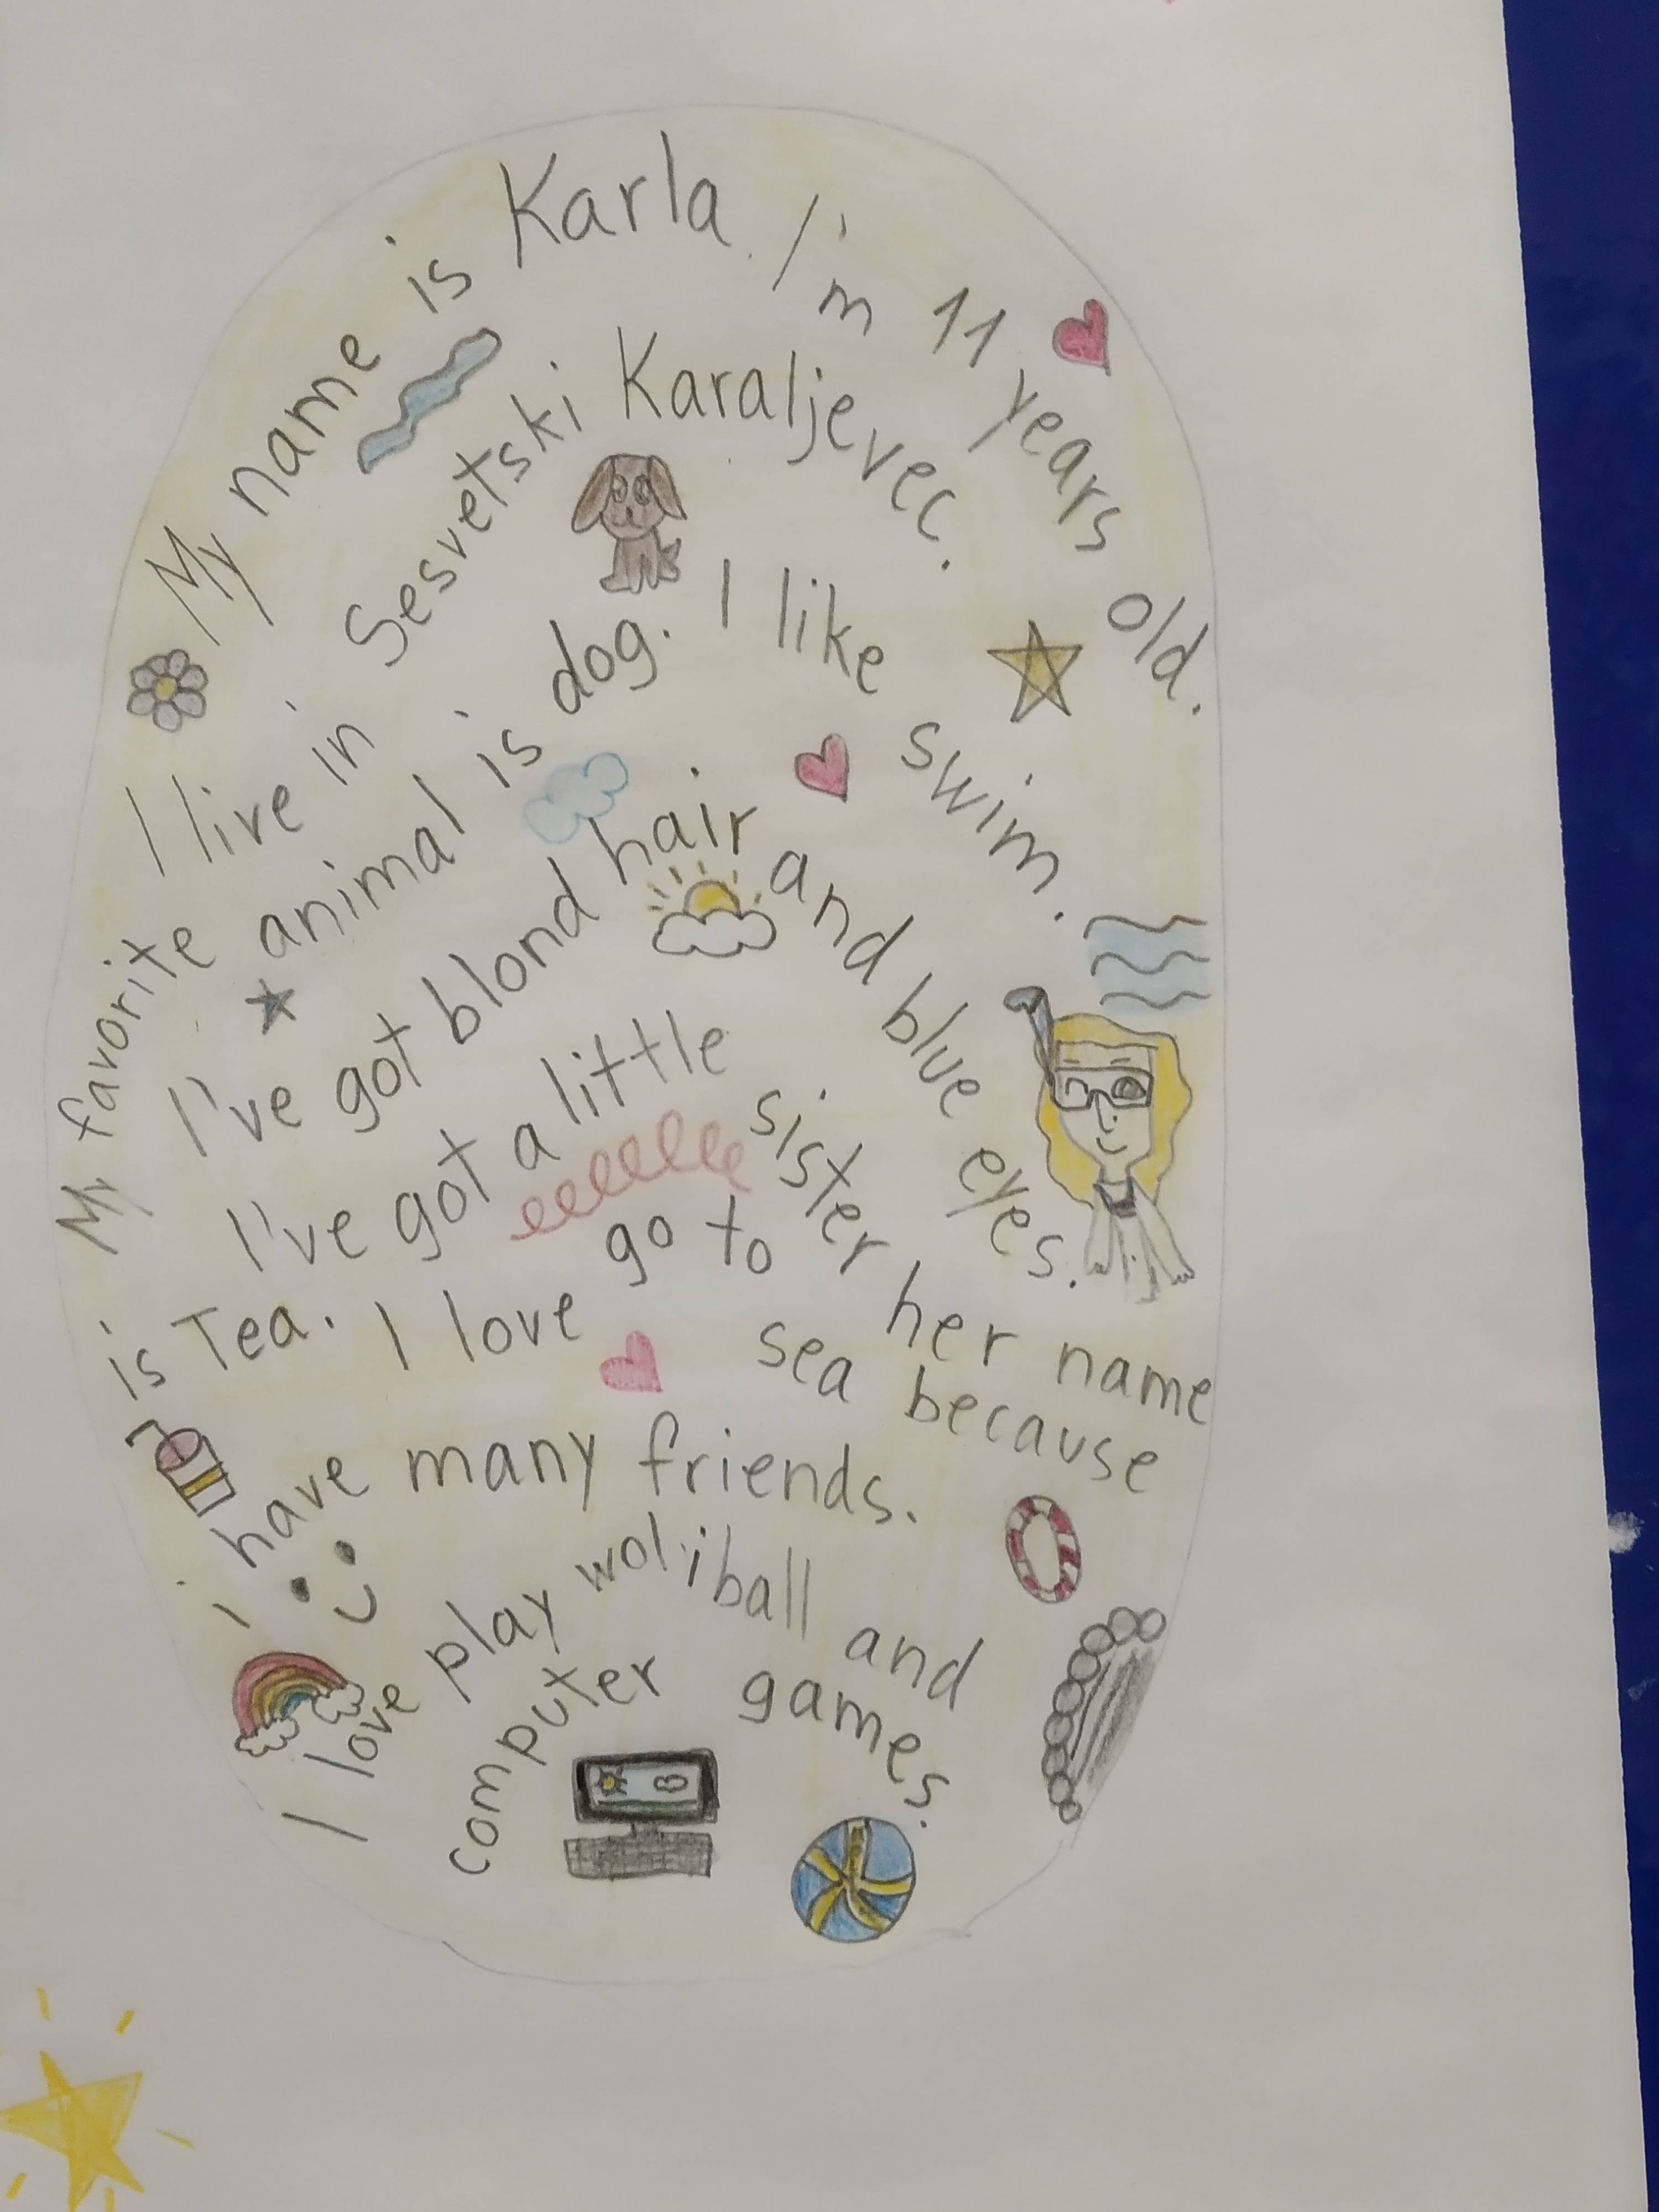 My name is Karla. I'm 11 years old.
I live in Sesvetski Karaljevec.
My favorite animal is dog. I like swim.
I've got blond hair and blue eyes.
I've got a little sister her name
is Tea. I love go to sea because
i have many friends.
I love play woliball and
computer games.